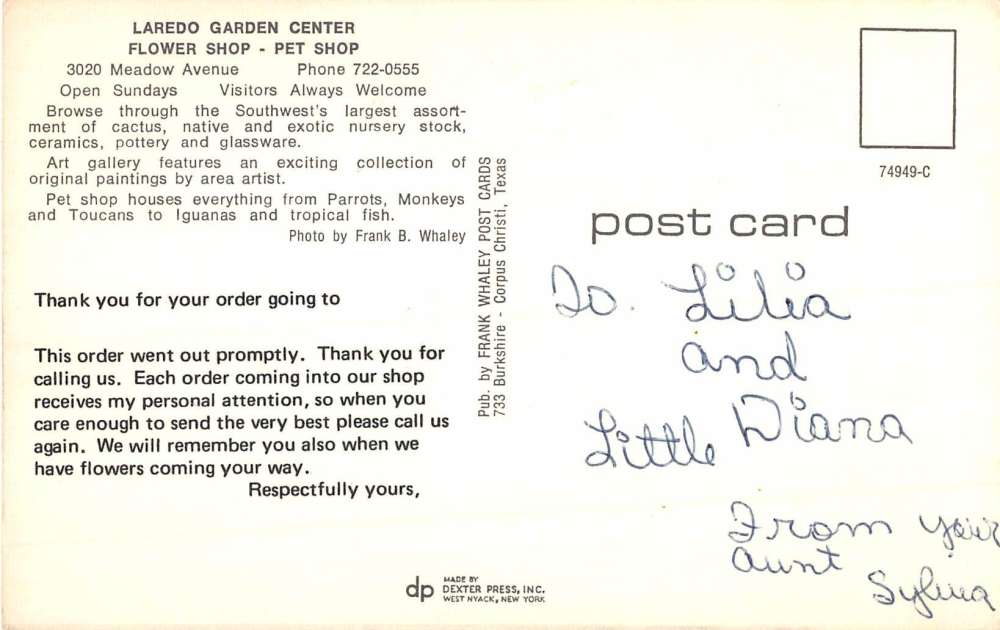 LAREDO GARDEN CENTER
FLOWER SHOP - PET SHOP
3020 Meadow Avenue Phone 722-0555
Open Sundays Visitors Always Welcome
Browse through the Southwest's largest assort-
ment of cactus, native and exotic nursery stock,
ceramics, pottery and glassware.
Art gallery features an exciting collection of
original paintings by area artist.
Pet shop houses everything from Parrots, Monkeys
and Toucans to Iguanas and tropical fish.
Photo by Frank B. Whaley
Thank you for your order going to
This order went out promptly. Thank you for
calling us. Each order coming into our shop
receives my personal attention, so when you
care enough to send the very best please call us
again. We will remember you also when we
have flowers coming your way.
Respectfully yours,
Pub. by FRANK WHALEY POST CARDS
733 Burkshire - Corpus Christi, Texas
dp MADE BY
DEXTER PRESS, INC.
WEST NYACK, NEW YORK
74949-C
post card
To. Lilia
and
Little Diana
From your
aunt
Sylvia